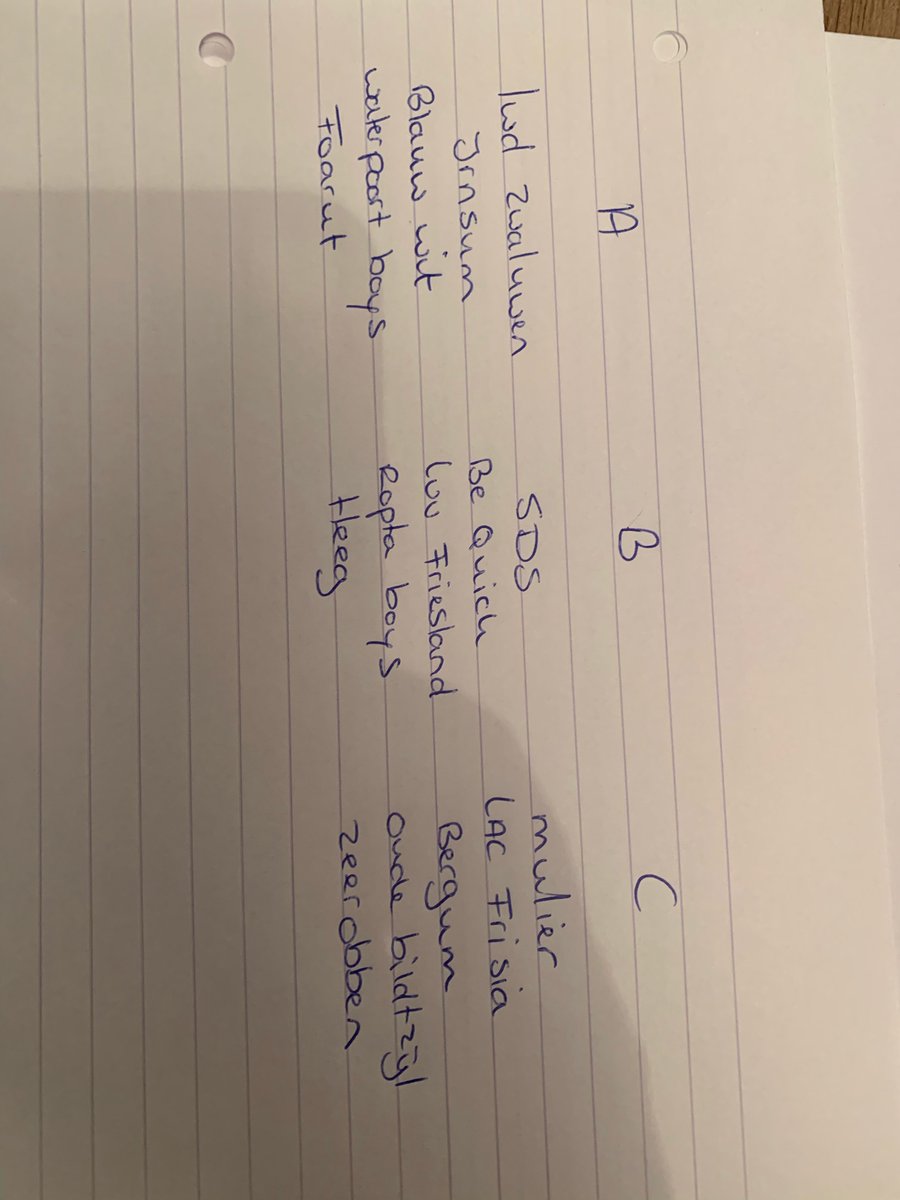 A B C
lwd zwaluwen SDS mulier
Jrnsum Be Quick LAC Frisia
Blauw wit LVV Friesland Bergum
waterpoort boys Ropta boys oude bildtzijl
Foarut Heeg zeerobben